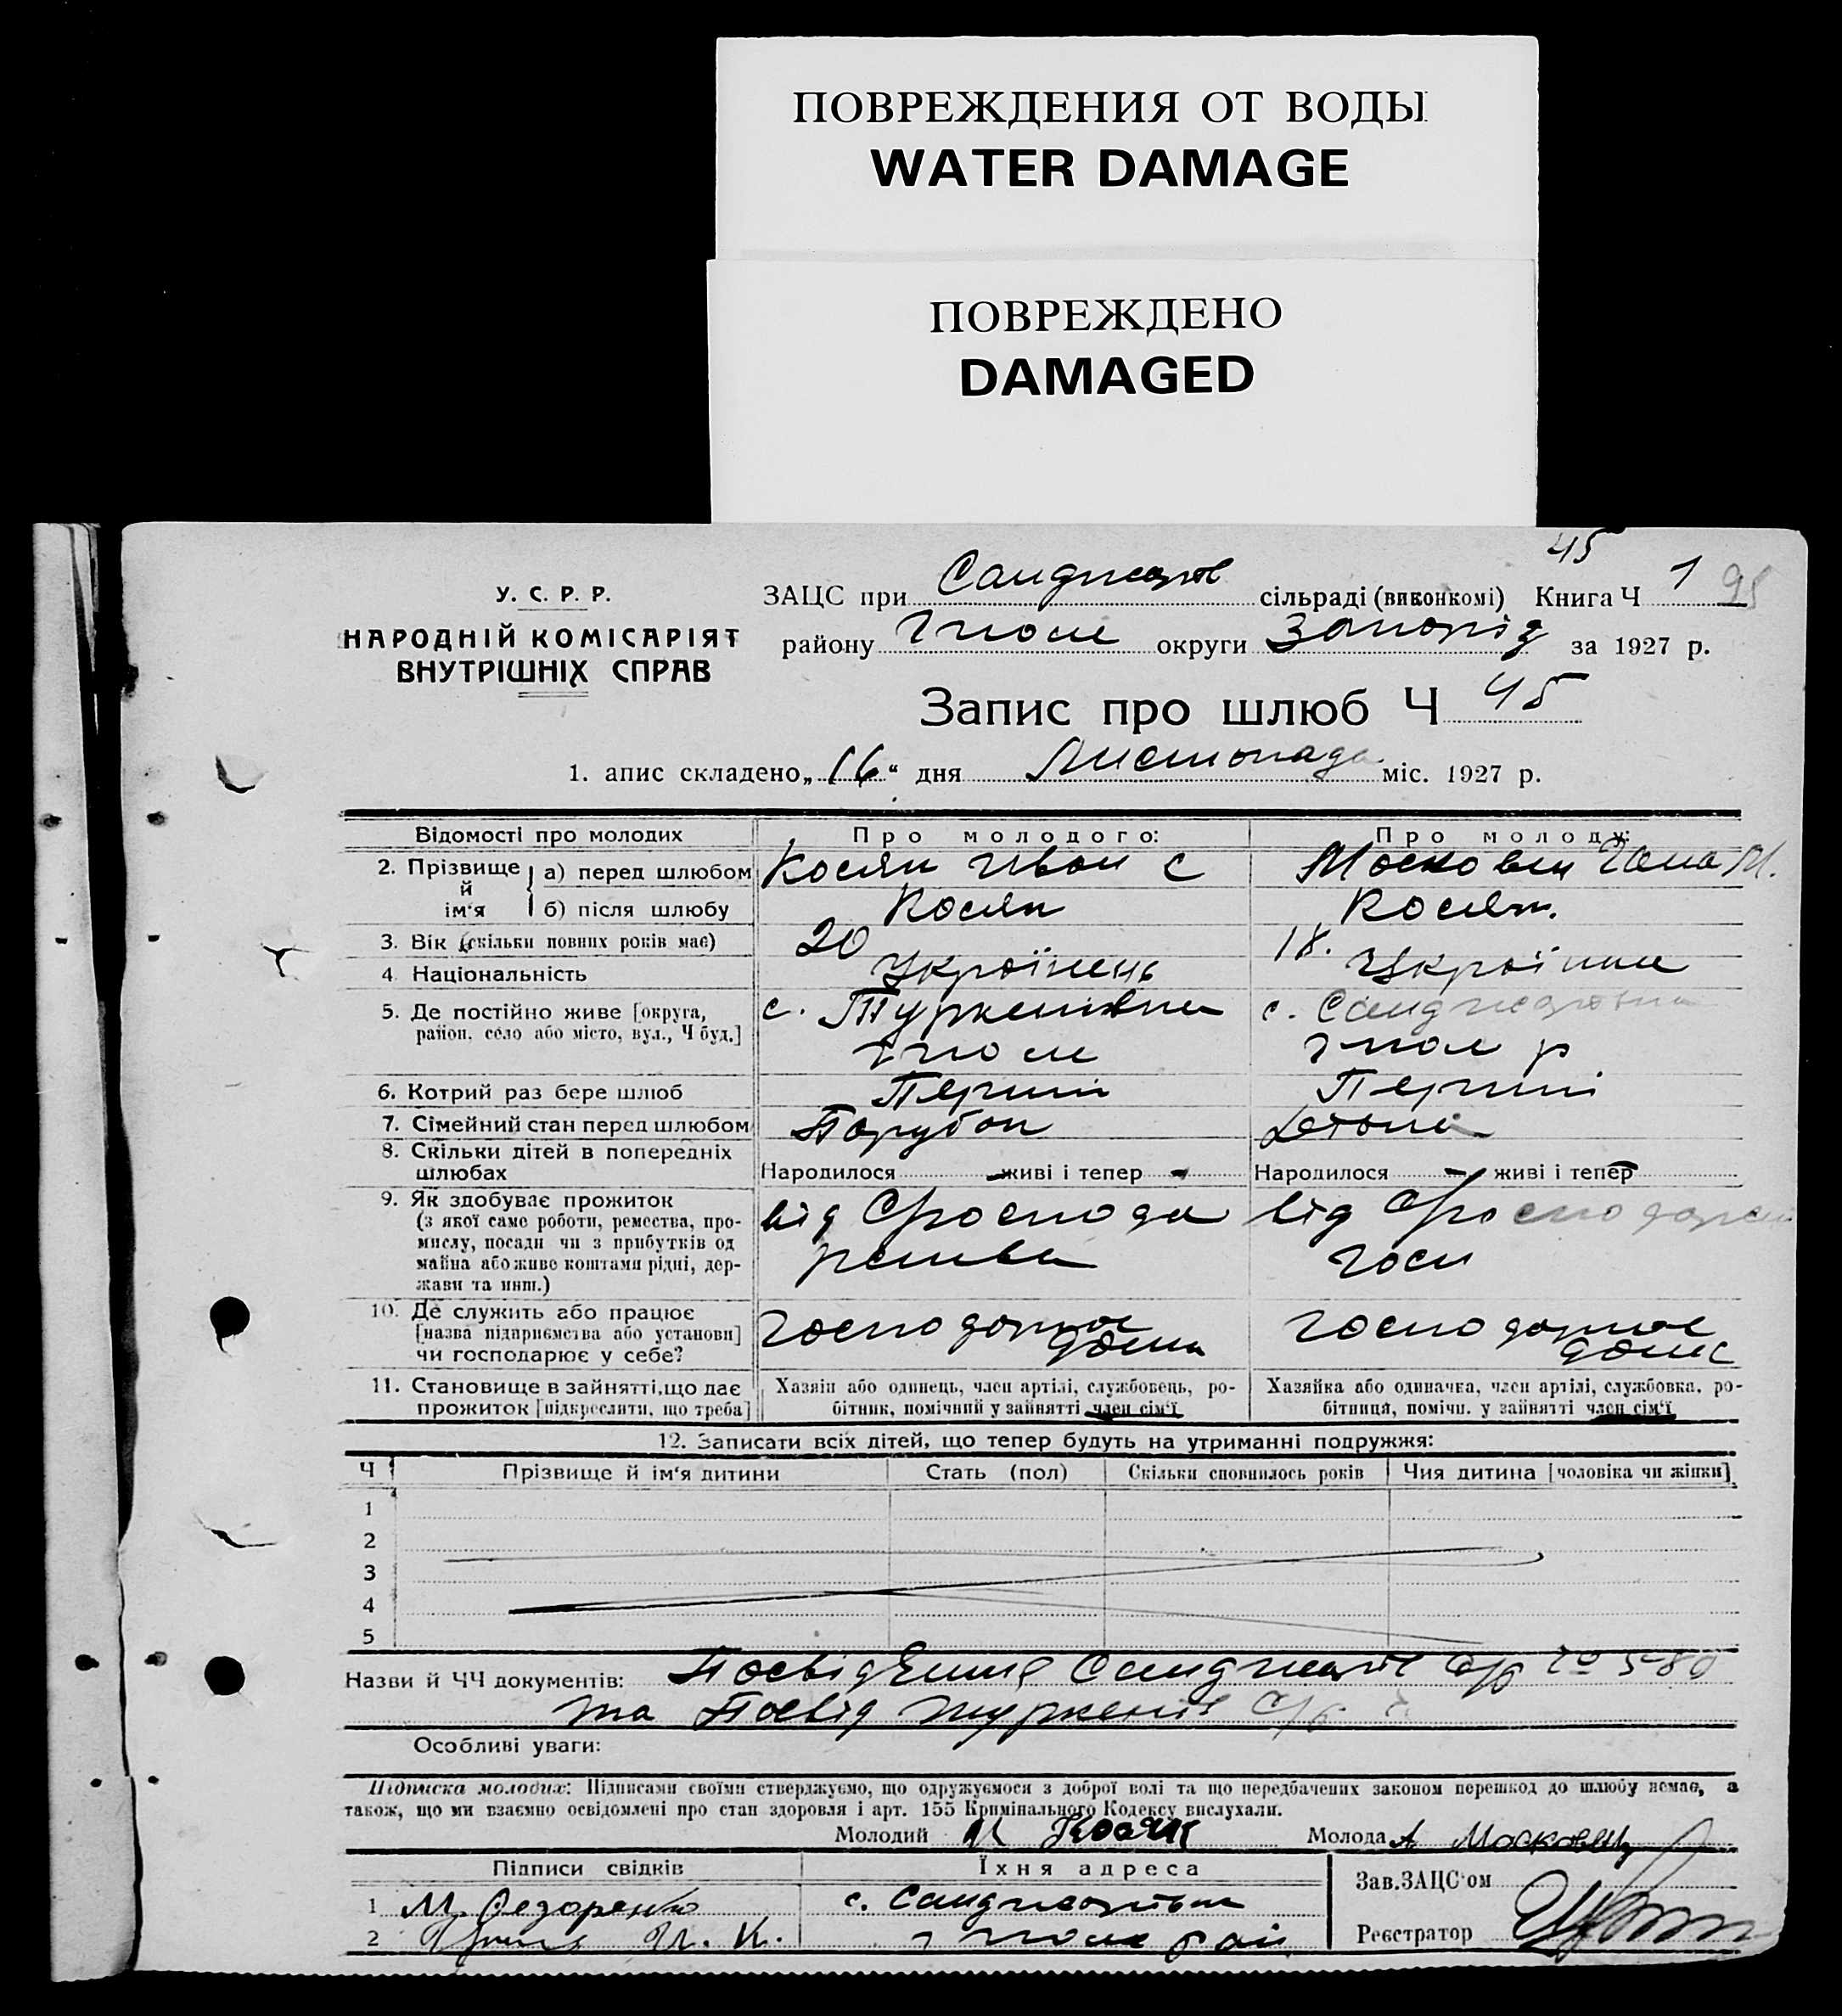 ПОВРЕЖДЕНИЯ ОТ ВОДЫ
WATER DAMAGE
ПОВРЕЖДЕНО
DAMAGED
45
У. С. Р. Р.
НАРОДНІЙ КОМІСАРІЯТ
ВНУТРІШНІХ СПРАВ
ЗАЦС при сільраді (виконкомі) Книга Ч 1 95
району округи Запоріз за 1927 р.
Запис про шлюб Ч 45
1. апис складено „16“ дня Листопада міс. 1927 р.
Відомості про молодих Про молодого: Про молоду:
2. Прізвище й ім'я
а) перед шлюбом Косяк Іван С Московец М.
б) після шлюбу Косяк Косяк
3. Вік (скільки повних років має) 20 18.
4 Національність Українець Українка
5. Де постійно живе [округа, район, село або місто, вул., Ч буд.] с. Туркенівка с.
р
6. Котрий раз бере шлюб Перший Перший
7. Сімейний стан перед шлюбом Парубок
8. Скільки дітей в попередніх шлюбах Народилося - живі і тепер - Народилося - живі і тепер -
9. Як здобуває прожиток
(з якої саме роботи, ремества, промислу, посади чи з прибутків од майна або живе коштами рідні, держави та инш.) від Сгоспода рства від
10. Де служить або працює [назва підприємства або установи] чи господарює у себе? Господарює дома Господарює дома
11. Становище в зайнятті, що дає прожиток [підкреслити, що треба]
Хазяїн або одинець, член артілі, службовець, робітник, помічний у зайнятті член сім'ї
Хазяйка або одиначка, член артілі, службовка, робітниця, помічн. у зайнятті член сім'ї
12. Записати всіх дітей, що тепер будуть на утриманні подружжя:
Ч Прізвище й ім'я дитини Стать (пол) Скільки сповнилось років Чия дитина [чоловіка чи жінки]
1
2
3
4
5
Назви й ЧЧ документів: 580
та Посвід Туркенів с/р.
Особливі уваги:
Підписка молодих: Підписами своїми стверджуємо, що одружуємося з доброї волі та що передбачених законом перешкод до шлюбу немає, а
також, що ми взаємно освідомлені про стан здоровля і арт. 155 Кримінального Кодексу вислухали.
Молодий И Косяк Молода А Московец
Підписи свідків Їхня адреса Зав.ЗАЦС'ом
1 М. с.
2 рай Реєстратор